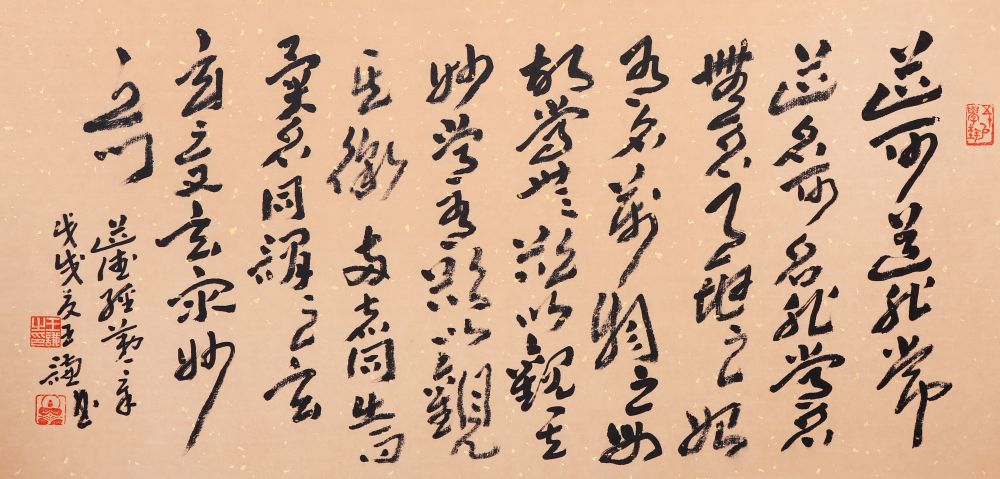 道可道非常
道名可名非常名
無名天地之始
有名萬物之母
故常無欲以觀其
妙常有欲以觀
其徼两者同出而
異名同謂之玄
玄之又玄眾妙
之門
道德經第一章
戊戌夏王謙書
王謙之印